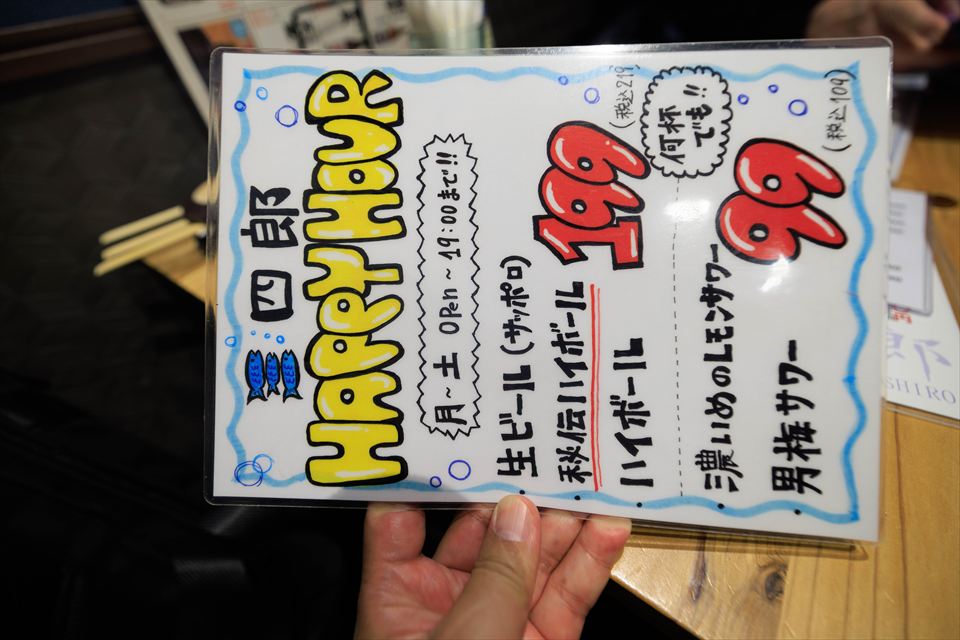 四郎
HAPPY HOUR
月～土 OPen～19:00まで!!
・生ビール(サッポロ)
・秘伝ハイボール
・ハイボール
199
(税込219)
何杯
でも!!
・濃いめのレモンサワー
・男梅サワー
99
(税込109)
SHIRO